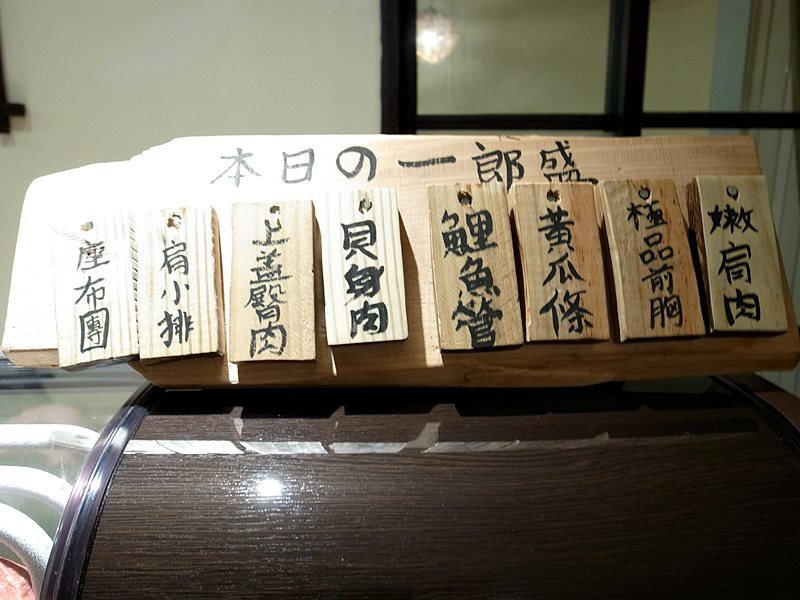 本日の一郎盛
座布團
肩小排
上蓋臀肉
貝身肉
鯉魚管
黃瓜條
極品前胸
嫩肩肉